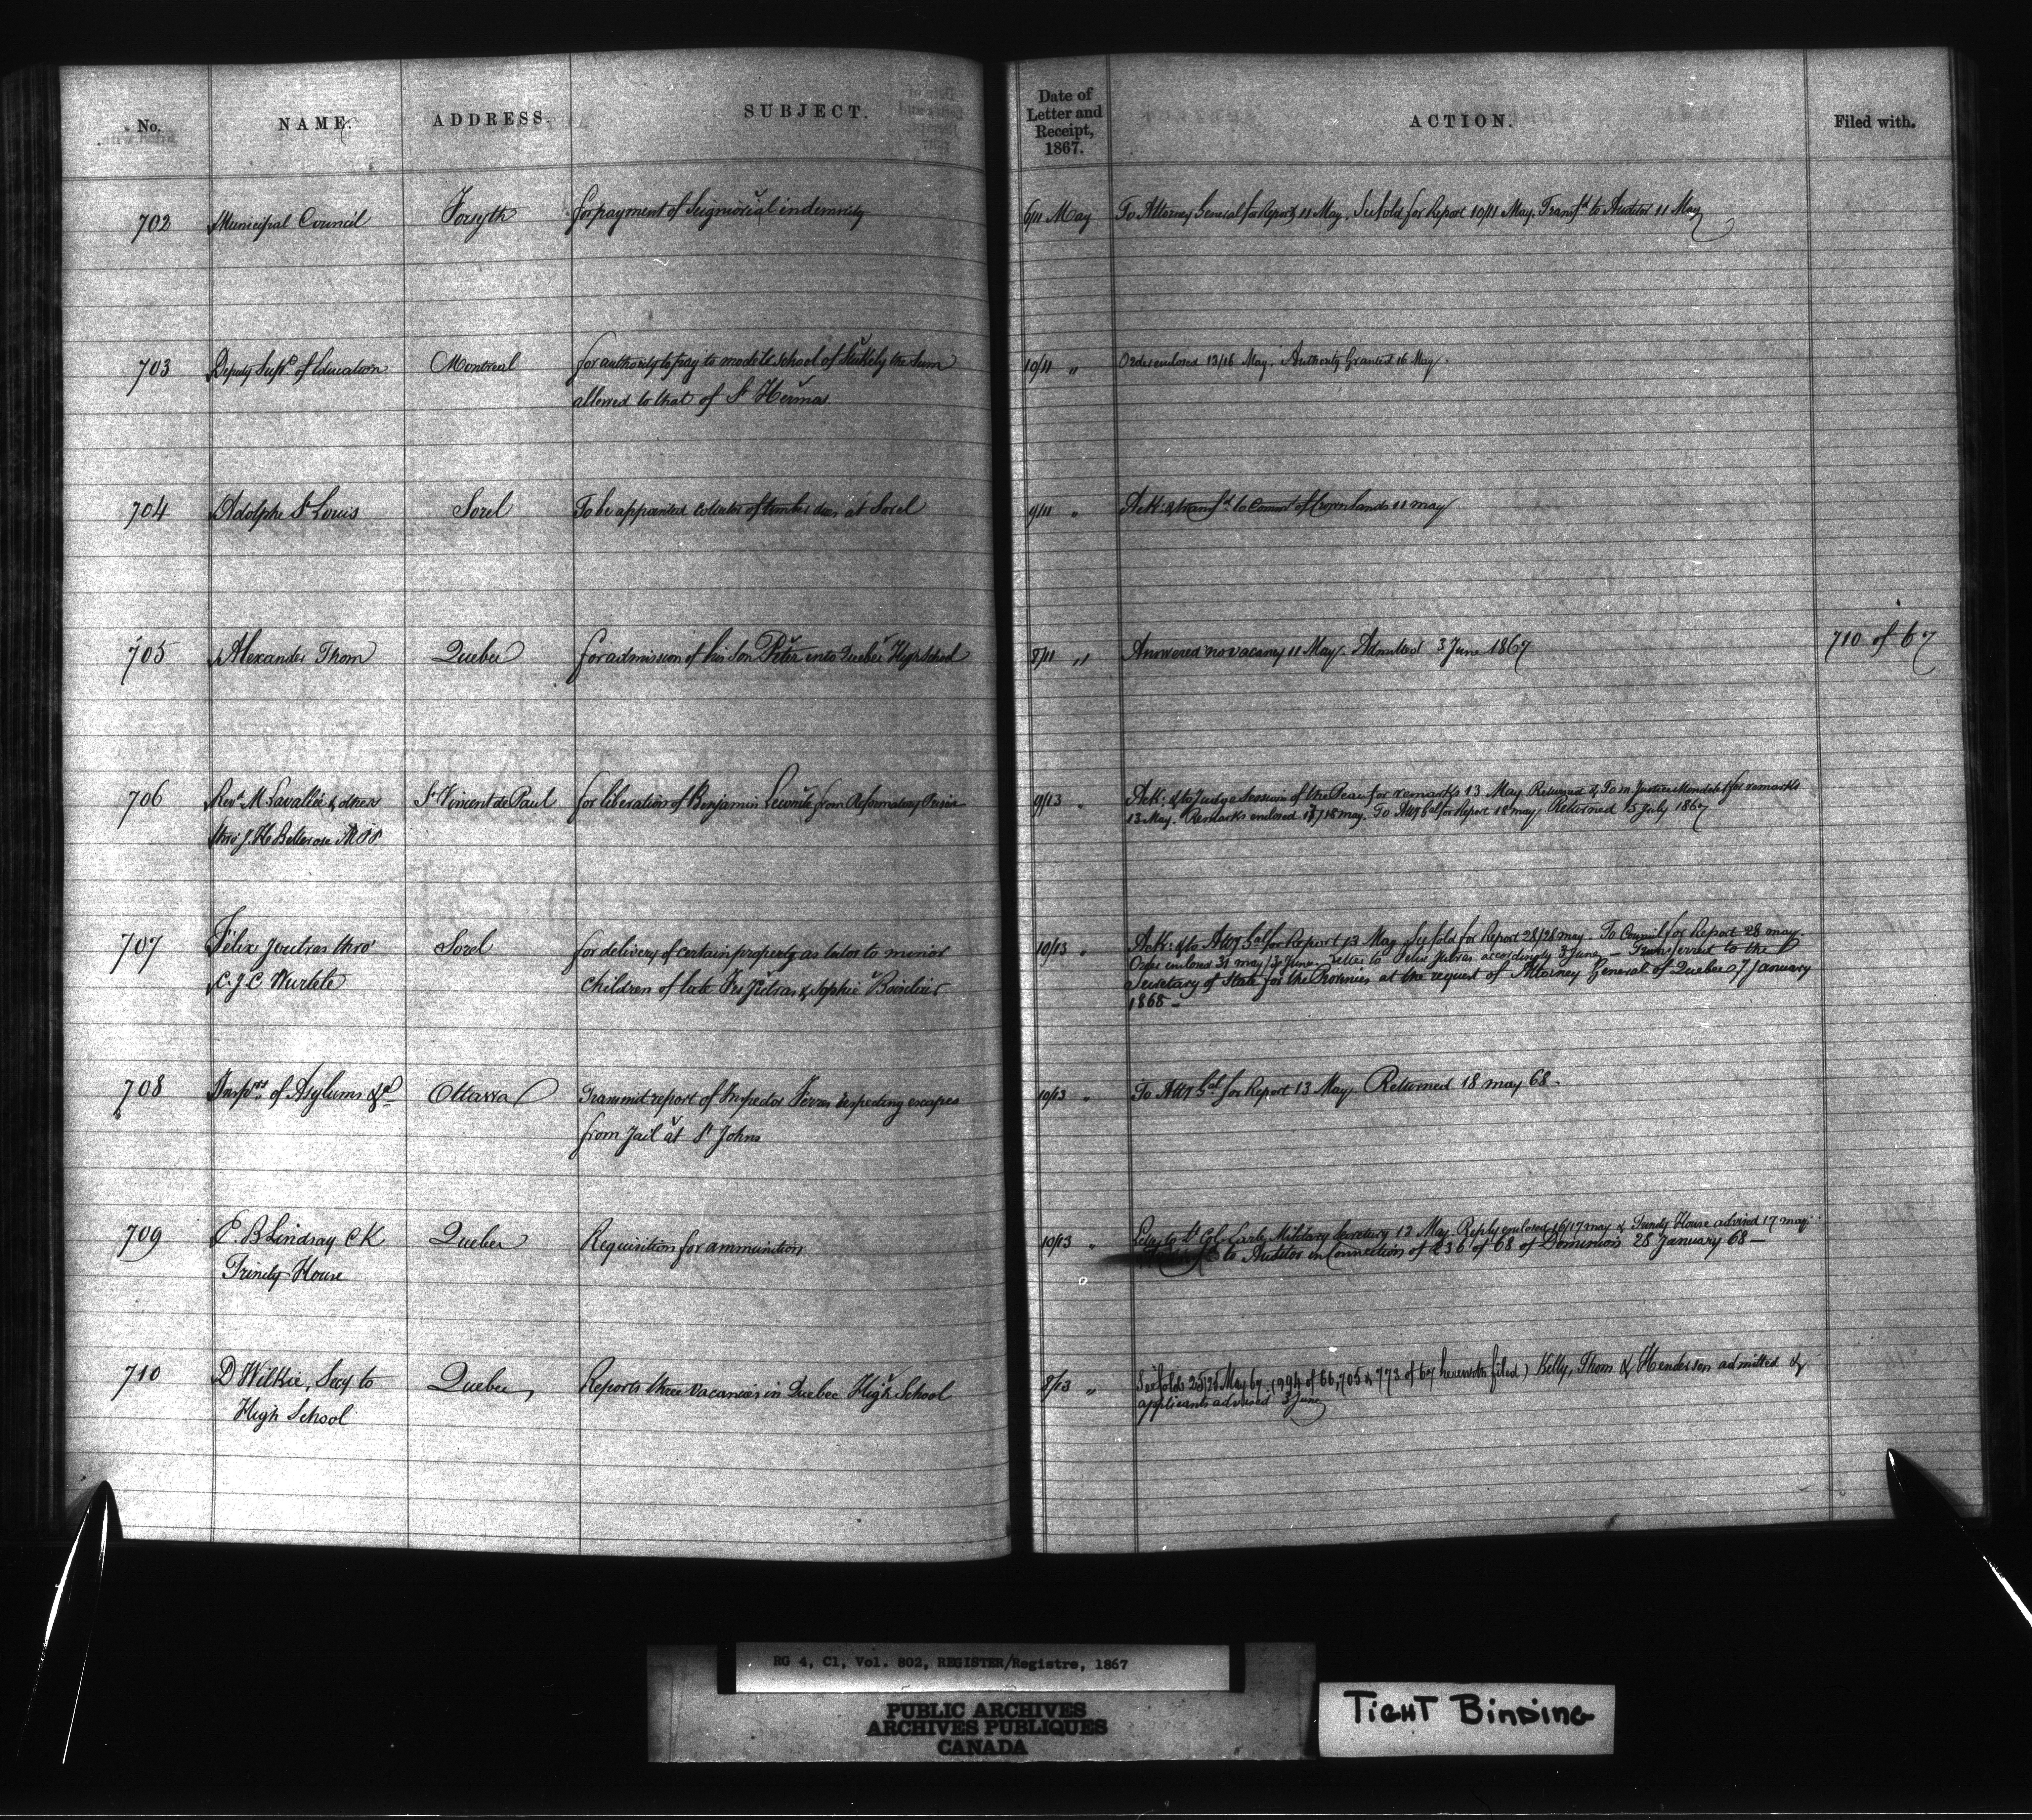 No. NAME. ADDRESS. SUBJECT. Date of Letter and Receipt, 1867. ACTION. Filed with.
702 Municipal Council Forsyth for payment of Seignorial indemnity 6/11 May To Attorney General for Report 11 May. See fold for Report 10/11 May. Transfd to Auditor 11 May
703 Deputy Supt of Education Montreal for authority to pay to model school of Stukely the Sum 10/11 " Order enclosed 13/16 May. Authority Granted 16 May.
allowed to that of St Hermas.
704 Adolphe St Louis Sorel To be appointed collector of timber dues at Sorel 9/11 " Ack: & transfd to Commr of Crown lands 11 may
705 Alexander Thom Quebec for admission of his son Peter into Quebec High School 8/11 " Answered no vacancy 11 May. Admitted 3 June 1867 710 of 67
706 Revd M Lavallée & others St Vincent de Paul for liberation of Benjamin Lecomte from Reformatory Prison 9/13 " Ack: & to Judge Sessions of the Peace for remarks 13 May Returned & To Mr Justice Mondelet for remarks
thro' J. H. Bellerose MPP. 13 May. Remarks enclosed 17/18 may. To Atty Gal for Report 18 may Returned 15 July 1867
707 Félix Jutras thro' Sorel for delivery of certain property as tutor to minor 10/13 " Ack: & to Atty Gal for Report 13 May See fold for Report 28/28 may. To Council for Report 28 may.
C. J. C Wurtele children of late Frs Jutras & Sophie Order enclosed 31 may/3 June. letter to Felix Jutras accordingly 3 June — Transferred to the
Secretary of State for the Provinces at the request of Attorney General of Quebec 7 January
1868 —
708 Insprs of Asylums &c Ottawa Transmit report of Inspector Ferres respecting escapes 10/13 " To Atty Gal for Report 13 May Returned 18 may 68.
from Jail at St Johns
709 E. B Lindsay CK Quebec Requisition for ammunition 10/13 " to Lt Col. Earle, Military Secretary 13 May Reply enclosed 16/17 may & Trinity House advised 17 may.
Trinity House to Auditor in Connection of 236 of 68 of Dominion 28 January 68 —
710 D Wilkie, Secy to Quebec Reports three vacancies in Quebec High School 8/13 " See folds 25/28 May 67 (994 of 66, 705 & 773 of 67 herewith filed) Kelly, Thom & Henderson admitted &
High School applicants advised 3 June
RG 4, C1, Vol. 802, REGISTER/Registre, 1867
PUBLIC ARCHIVES
ARCHIVES PUBLIQUES
CANADA
TIGHT BINDING